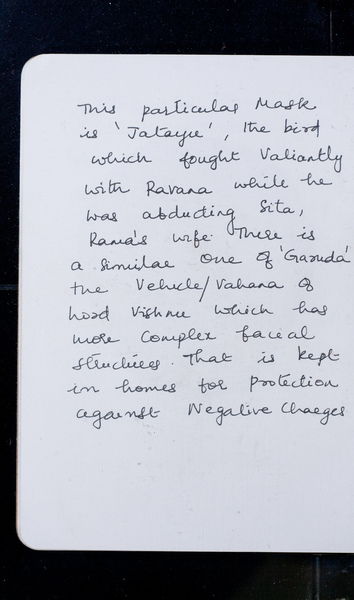 This particular Mask
is 'Jatayu', the bird
which fought Valiantly
with Ravana while he
was abducting Sita,
Rama's wife. There is
a similar one of 'Garuda'
the Vehicle/Vahana of
Lord Vishnu which has
more Complex facial
structures. That is kept
in homes for protection
against Negative Charges